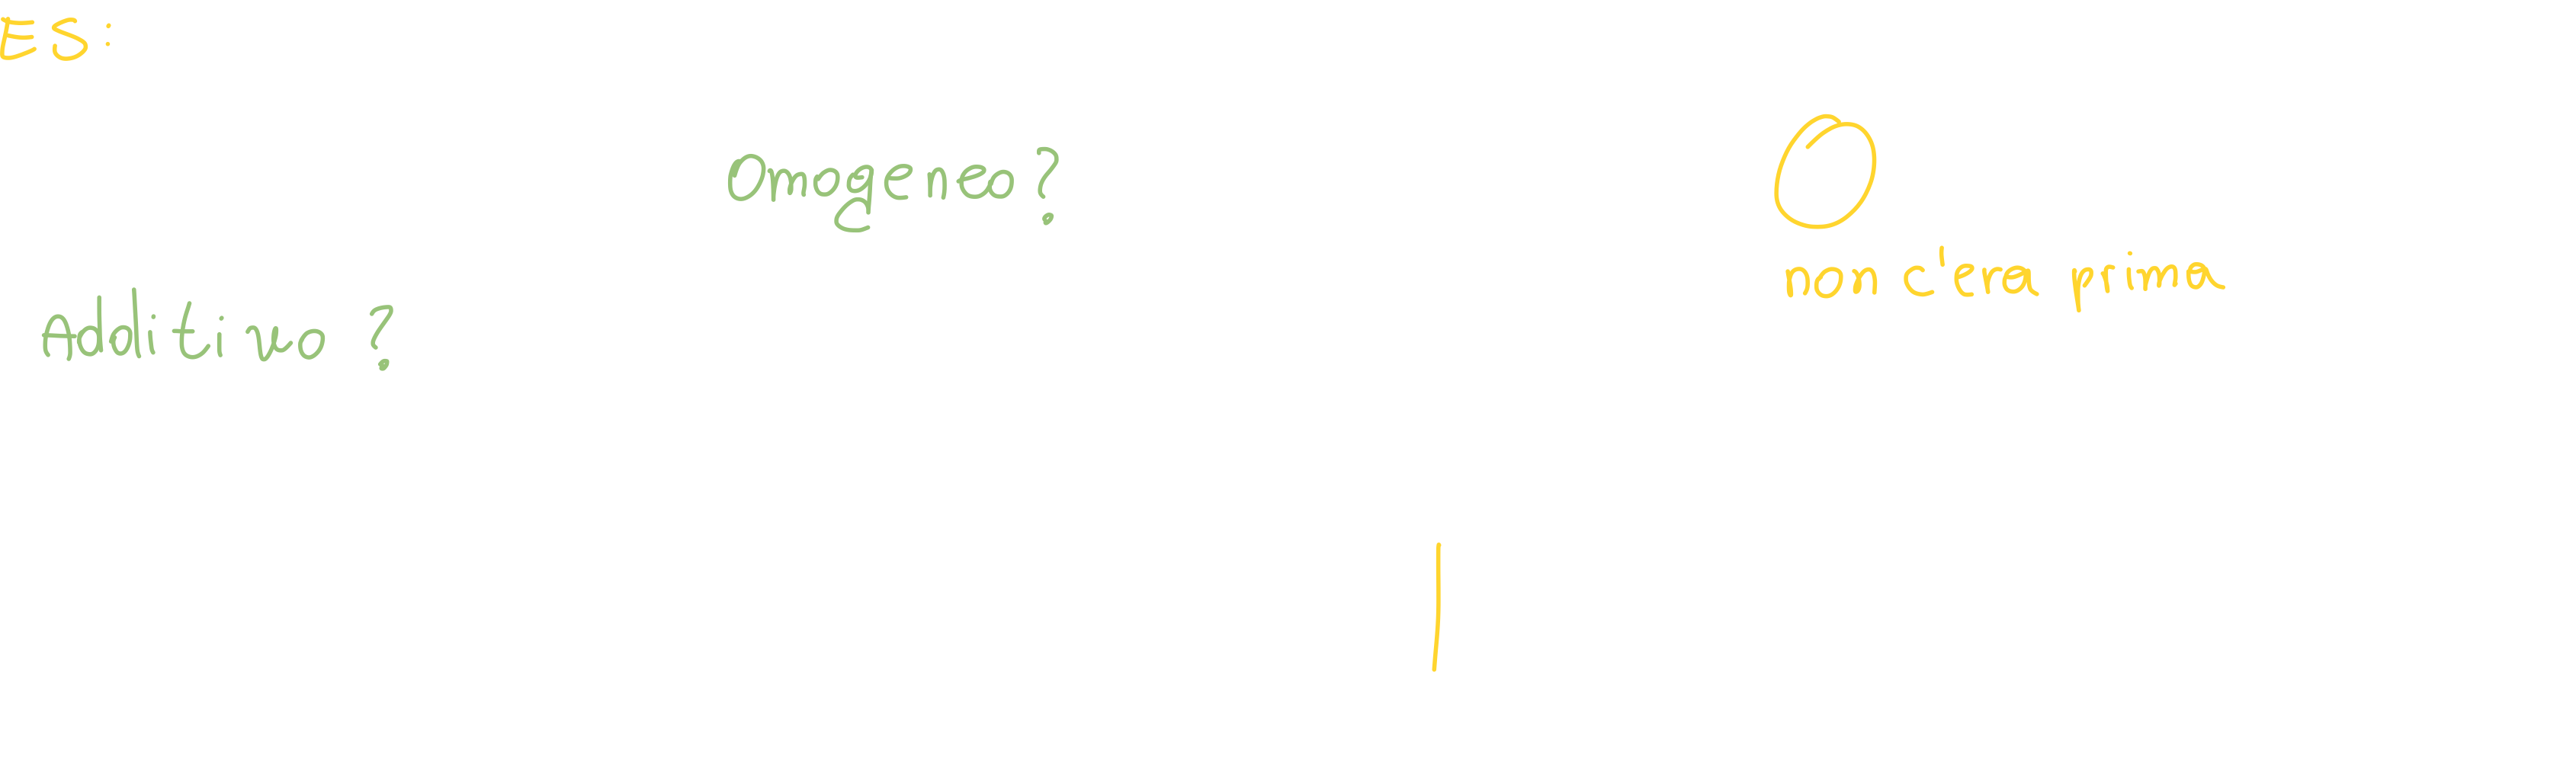 ES:
Omogeneo?
non c'era prima
Additivo ?